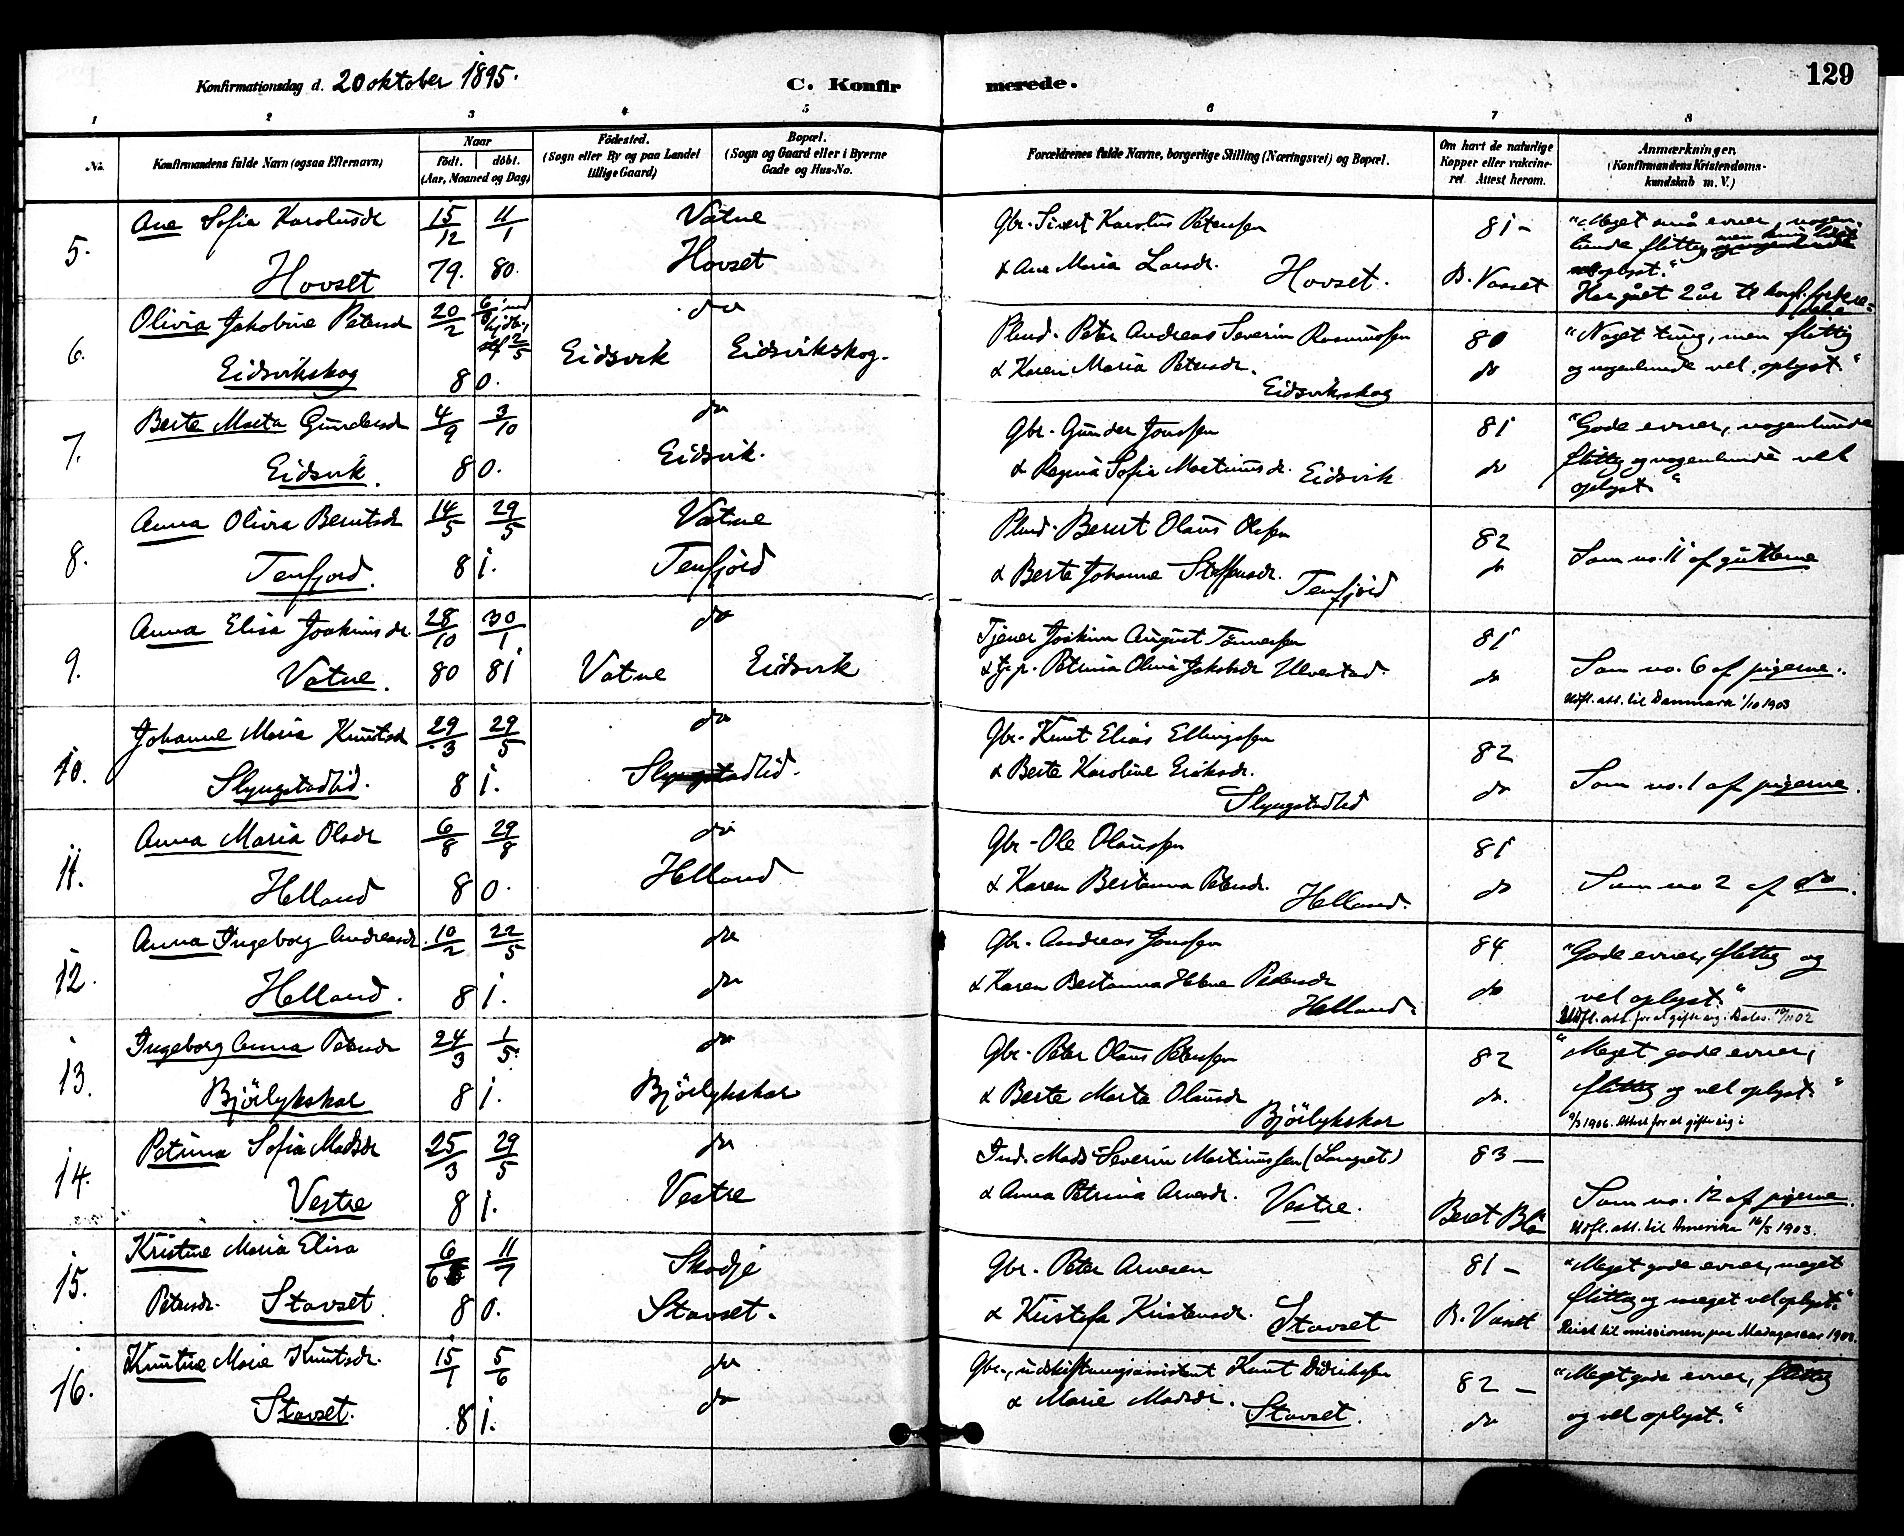 Konfirmationsdag d. 20 oktober 1895.
C. Konfirmerede.
129
1 2 3 4 5 6 7 8
No.
Konfirmandens fulde Navn (ogsaa Efternavn)
Naar
født. døbt.
(Aar, Maaned og Dag)
Fødested.
(Sogn eller By og paa Landet
tillige Gaard)
Bopæl.
(Sogn og Gaard eller i Byerne
Gade og Hus-No.
Forældrenes fulde Navne, borgerlige Stilling (Næringsvei) og Bopæl.
Om havt de naturlige
Kopper eller vakcine-
ret. Attest herom.
Anmærkninger.
(Konfirmandens Kristendoms-
kundskab m. V.)
5. Ane Sofie Karolusdr 15/12 11/1 Vatne Gbr. Sivert Karolus Petersen 81 - "Meget små evner, nogen-
lunde flittig
Hovset 79. 80. Hovset & Ane Maria Larsdr. Hovset. B. Vasset oplyst."
Har gået 2 år
6. Olivia Jakobine Petersdr 20/2 do Plmd. Peter Andreas Severin Rasmussen 80 "Noget tung, men flittig
Eidsvikskog 80. Eidsvik Eidsvikskog. & Karen Maria Petersdr. Eidsvikskog do og nogenlunde vel oplyst"
7. Berte Marta Gundersdr 4/9 3/10 do Gbr. Gunder Jonssen 81 "Gode evner, nogenlunde
Eidsvik. 80. Eidsvik. & Ragna Sofia Martinusdr. Eidsvik do flittig og nogenlunde vel
oplyst"
8. Anna Olivia Berntsdr 14/5 29/5 Vatne Plmd. Bernt Olaus Olssen 82 Som no. 11 af gutterne
Tenfjord. 81. Tenfjord & Berte Johanne Steffensdr. Tenfjord do
9. Anna Elisa Joakimsdr. 28/10 30/1 do Tjener Joakim August Tønnessen 81
Vatne. 80 81 Vatne Eidsvik & Petrina Olina Jakobsdr Ulvestad. do Som no. 6 af pigerne.
Udfl. att. til Danmark 1/10 1903
10. Johanne Maria Knutsdr 29/3 29/5 do Gbr. Knut Elias Ellingssen 82
Slyngstadlid. 81. Slyngstadlid. & Berte Karoline Eriksdr. Slyngstadlid do Som no. 1 af pigerne.
11. Anna Maria Olsdr 6/8 29/8 do Gbr. Ole Olaussen 81
Helland 80. Helland & Karen Bertanna Petersdr. Helland. do Som no 2 af do.
12. Anna Ingeborg Andreasdr. 10/2 22/5 do Gbr. Andreas Jonssen 84 "Gode evner, flittig og
Helland. 81. do & Karen Bertanna Helene Pedersdr Helland. do vel oplyst."
Udfl. att. for at gifte sig i 02
13. Ingeborg Anna Petersdr 24/3 1/5. do Gbr. Peter Olaus Peterssen 82 "Meget gode evner,
Bjørlykskar 81. Bjørlykskar & Berte Marta Olausdr Bjørlykskar do. flittig og vel oplyst."
9/3 1906. Attest for at gifte sig i
14. Petrina Sofia Madsdr 25/3 29/5 do Ind. Mads Severin Martinussen (Langset) 83 -
Vestre 81. Vestre & Anna Petrina Arnesdr. Vestre. Beret Blø Som no. 12 af pigerne.
Udfl. att. til Amerika 16/5 1903.
15. Kristine Maria Elisa 6/6 11/7 Skodje Gbr. Peter Arnesen 81 - "Meget gode evner, meget
Petersdr. Stavset. 80. Stavset. & Kristofa Kristensdr. Stavset B. Vasset flittig og meget vel oplyst."
Reist til missionen paa Madagascar
16. Knutine Marie Knutsdr. 15/1 5/6 do Gbr., udskiftningsassistent Knut Didrikssen 82 - "Meget gode evner, flittig
Stavset. 81. do & Marie Madsdr. Stavset. do og vel oplyst."